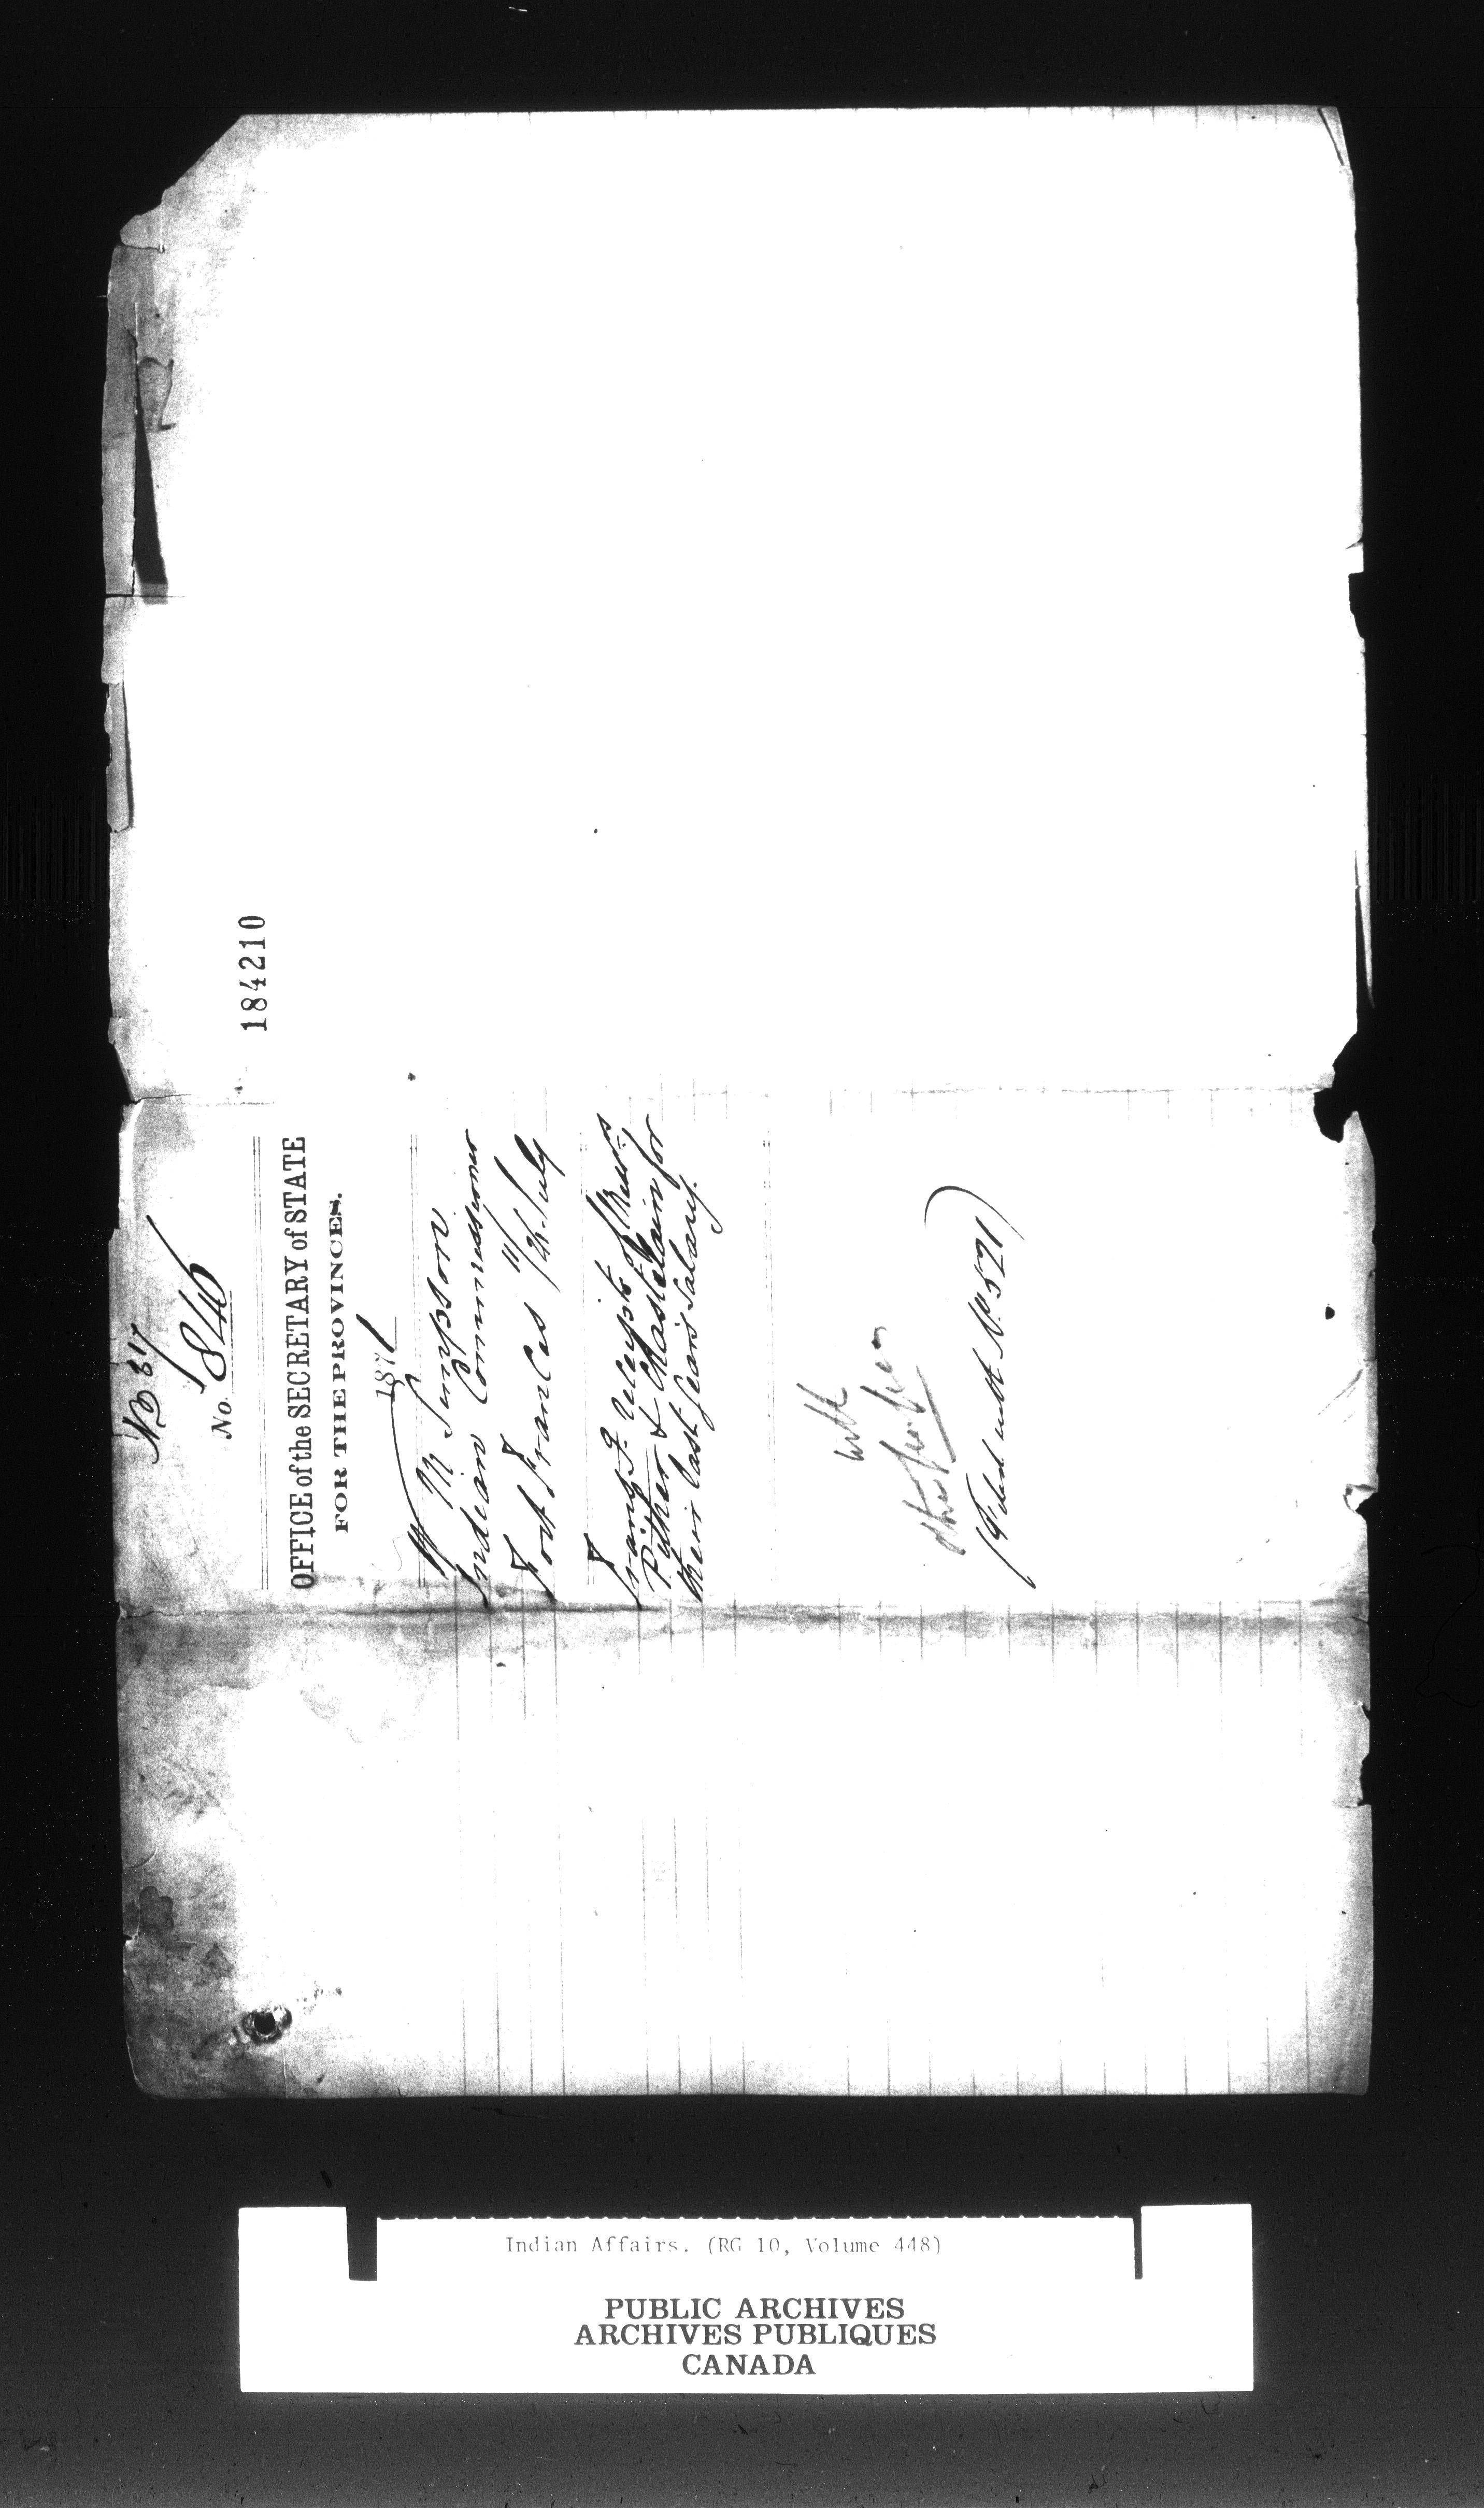 184210
No 37
No. 846
OFFICE of the SECRETARY of STATE
FOR THE PROVINCES.
1871
W M Simpson
Indian Commissioner
Fort Frances 11/12 July
Transg. receipts of Messrs
Pither & Chastelain for
their last years Salary.
with
other
(Filed with No 521)
Indian Affairs. (RG 10, Volume 448)
PUBLIC ARCHIVES
ARCHIVES PUBLIQUES
CANADA